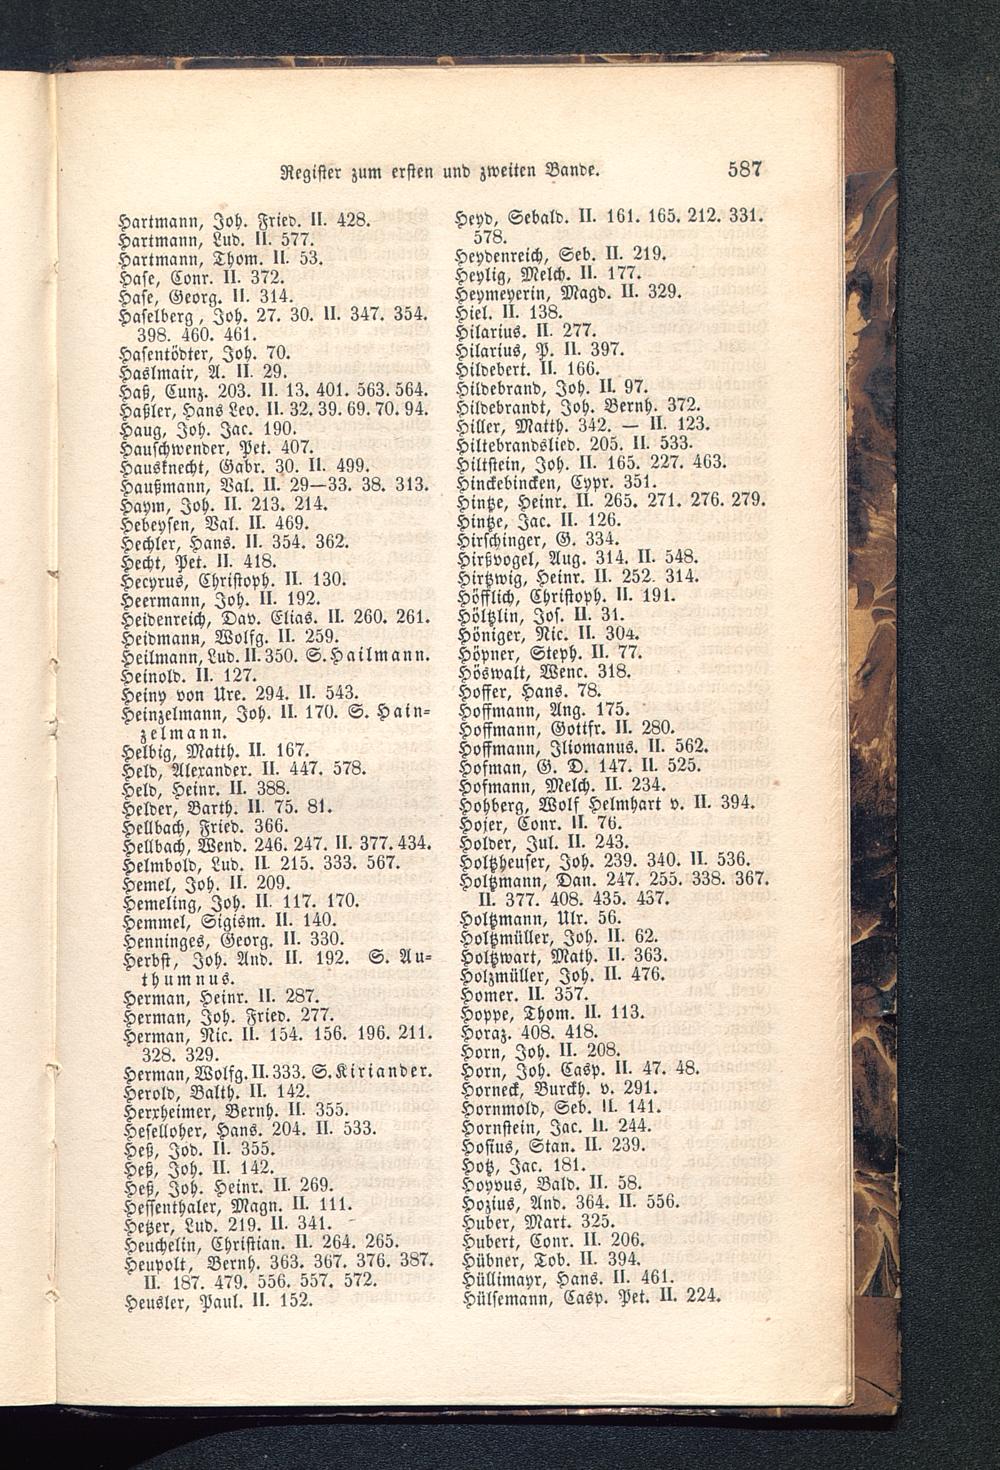 Register zum ersten und zweiten Bande. 587
Hartmann, Joh. Fried. II. 428.
Hartmann, Lud. II. 577.
Hartmann, Thom. II. 53.
Hase, Conr. II. 372.
Hase, Georg. II. 314.
Haselberg, Joh. 27. 30. II. 347. 354.
398. 460. 461.
Hasentödter, Joh. 70.
Haslmair, A. II. 29.
Haß, Cunz. 203. II. 13. 401. 563. 564.
Haßler, Hans Leo. II. 32. 39. 69. 70. 94.
Haug, Joh. Jac. 190.
Hauschwender, Pet. 407.
Hausknecht, Gabr. 30. II. 499.
Haußmann, Val. II. 29—33. 38. 313.
Haym, Joh. II. 213. 214.
Hebeysen, Val. II. 469.
Hechler, Hans. II. 354. 362.
Hecht, Pet. II. 418.
Hecyrus, Christoph. II. 130.
Heermann, Joh. II. 192.
Heidenreich, Dav. Elias. II. 260. 261.
Heidmann, Wolfg. II. 259.
Heilmann, Lud. II. 350. S. Hailmann.
Heinold. II. 127.
Heiny von Ure. 294. II. 543.
Heinzelmann, Joh. II. 170. S. Hain=
zelmann.
Helbig, Matth. II. 167.
Held, Alexander. II. 447. 578.
Held, Heinr. II. 388.
Helder, Barth. II. 75. 81.
Hellbach, Fried. 366.
Hellbach, Wend. 246. 247. II. 377. 434.
Helmbold, Lud. II. 215. 333. 567.
Hemel, Joh. II. 209.
Hemeling, Joh. II. 117. 170.
Hemmel, Sigism. II. 140.
Henninges, Georg. II. 330.
Herbst, Joh. And. II. 192. S. Au=
thumnus.
Herman, Heinr. II. 287.
Herman, Joh. Fried. 277.
Herman, Nic. II. 154. 156. 196. 211.
328. 329.
Herman, Wolfg. II. 333. S. Kiriander.
Herold, Balth. II. 142.
Herxheimer, Bernh. II. 355.
Heselloher, Hans. 204. II. 533.
Heß, Jod. II. 355.
Heß, Joh. II. 142.
Heß, Joh. Heinr. II. 269.
Hessenthaler, Magn. II. 111.
Hetzer, Lud. 219. II. 341.
Heuchelin, Christian. II. 264. 265.
Heupolt, Bernh. 363. 367. 376. 387.
II. 187. 479. 556. 557. 572.
Heusler, Paul. II. 152.
Heyd, Sebald. II. 161. 165. 212. 331.
578.
Heydenreich, Seb. II. 219.
Heylig, Melch. II. 177.
Heymeyerin, Magd. II. 329.
Hiel. II. 138.
Hilarius. II. 277.
Hilarius, P. II. 397.
Hildebert. II. 166.
Hildebrand, Joh. II. 97.
Hildebrandt, Joh. Bernh. 372.
Hiller, Matth. 342. — II. 123.
Hiltebrandslied. 205. II. 533.
Hiltstein, Joh. II. 165. 227. 463.
Hinckebincken, Cypr. 351.
Hintze, Heinr. II. 265. 271. 276. 279.
Hintze, Jac. II. 126.
Hirschinger, G. 334.
Hirßvogel, Aug. 314. II. 548.
Hirtzwig, Heinr. II. 252. 314.
Höfflich, Christoph. II. 191.
Höltzlin, Jos. II. 31.
Höniger, Nic. II. 304.
Höpner, Steph. II. 77.
Höswalt, Wenc. 318.
Hoffer, Hans. 78.
Hoffmann, Ang. 175.
Hoffmann, Gottfr. II. 280.
Hoffmann, Iliomanus. II. 562.
Hofman, G. D. 147. II. 525.
Hofmann, Melch. II. 234.
Hohberg, Wolf Helmhart v. II. 394.
Hojer, Conr. II. 76.
Holder, Jul. II. 243.
Holtzheuser, Joh. 239. 340. II. 536.
Holtzmann, Dan. 247. 255. 338. 367.
II. 377. 408. 435. 437.
Holtzmann, Ulr. 56.
Holtzmüller, Joh. II. 62.
Holtzwart, Math. II. 363.
Holzmüller, Joh. II. 476.
Homer. II. 357.
Hoppe, Thom. II. 113.
Horaz. 408. 418.
Horn, Joh. II. 208.
Horn, Joh. Casp. II. 47. 48.
Horneck, Burckh. v. 291.
Hornmold, Seb. II. 141.
Hornstein, Jac. II. 244.
Hosius, Stan. II. 239.
Hotz, Jac. 181.
Hoyous, Bald. II. 58.
Hozius, And. 364. II. 556.
Huber, Mart. 325.
Hubert, Conr. II. 206.
Hübner, Tob. II. 394.
Hüllimayr, Hans. II. 461.
Hülsemann, Casp. Pet. II. 224.